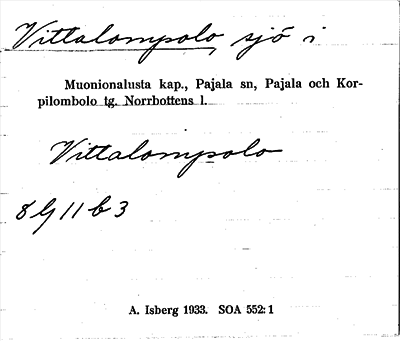 Vittalompolo, sjö i
Muonionalusta kap., Pajala sn, Pajala och Kor-
pilombolo tg. Norrbottens l.
Vittalompolo
8 lj 11 b 3
A. Isberg 1933. SOA 552:1